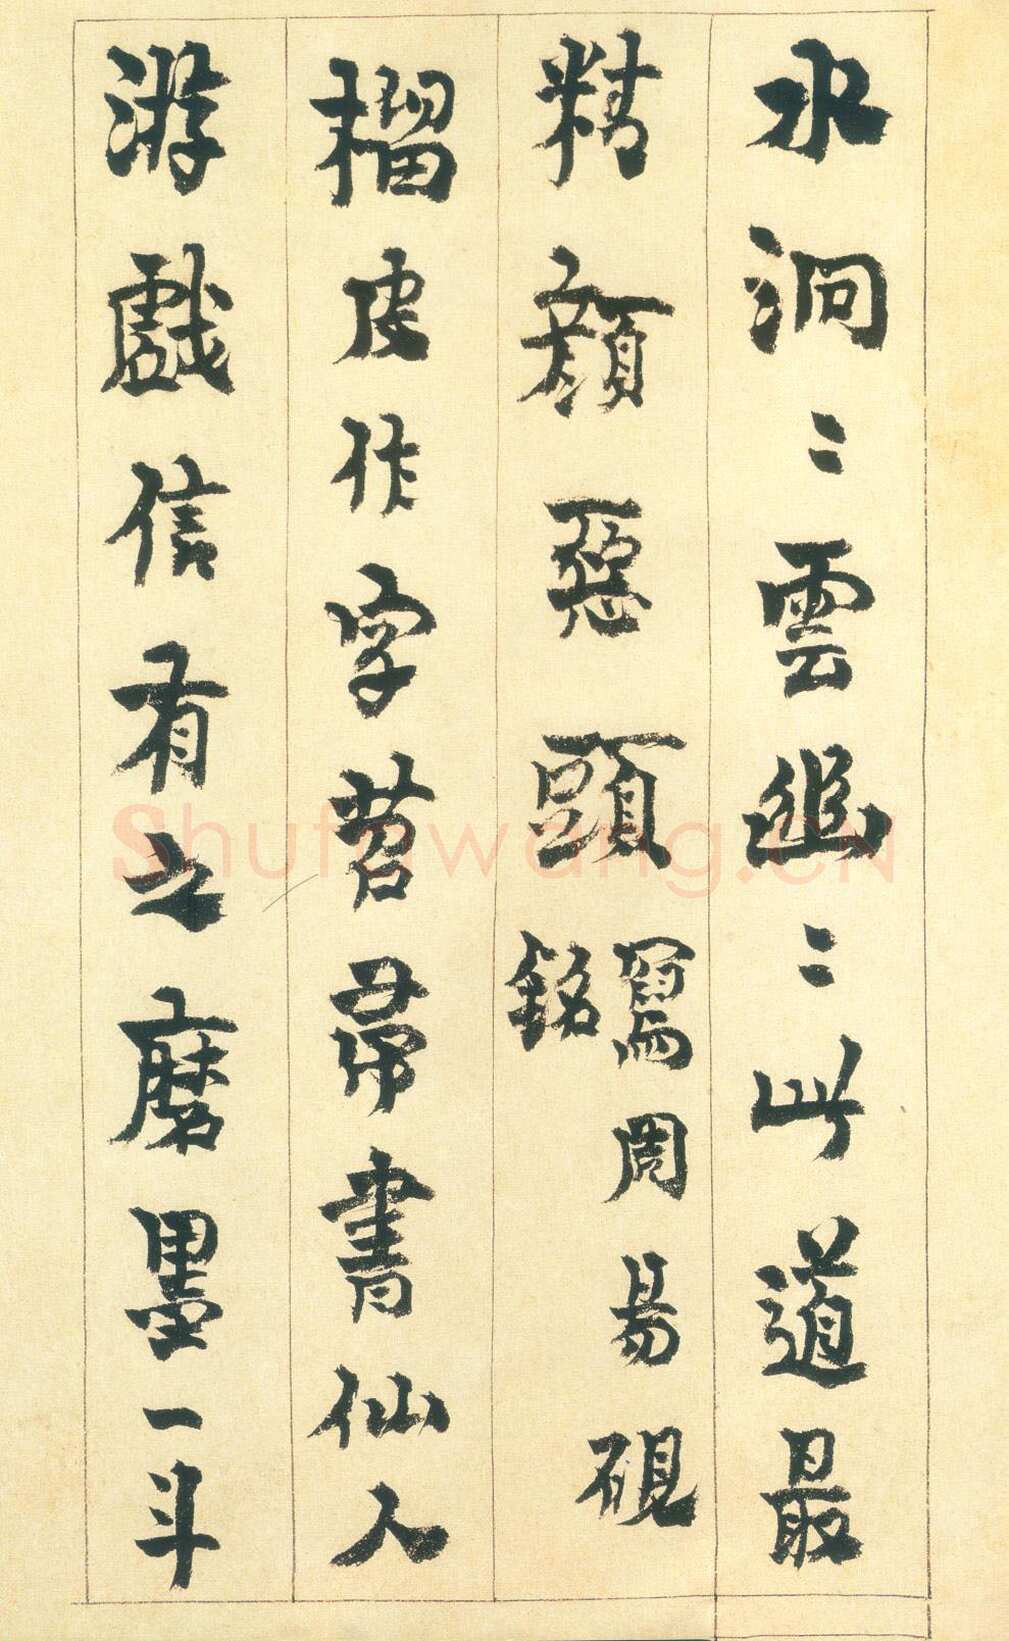 水洞〻雲幽〻此道最
精顏惡頭寫周易硯
銘
榴皮作字苕帚書仙人
游戲信有之磨墨一斗
Shufawang.CN